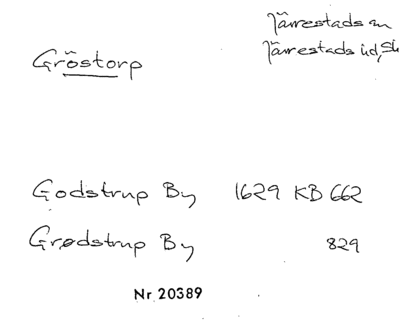 Järrestads sn
Gröstorp Järrestads hd, Sk
Godstrup By 1629 KB 662
Grødstrup By 829
Nr 20389